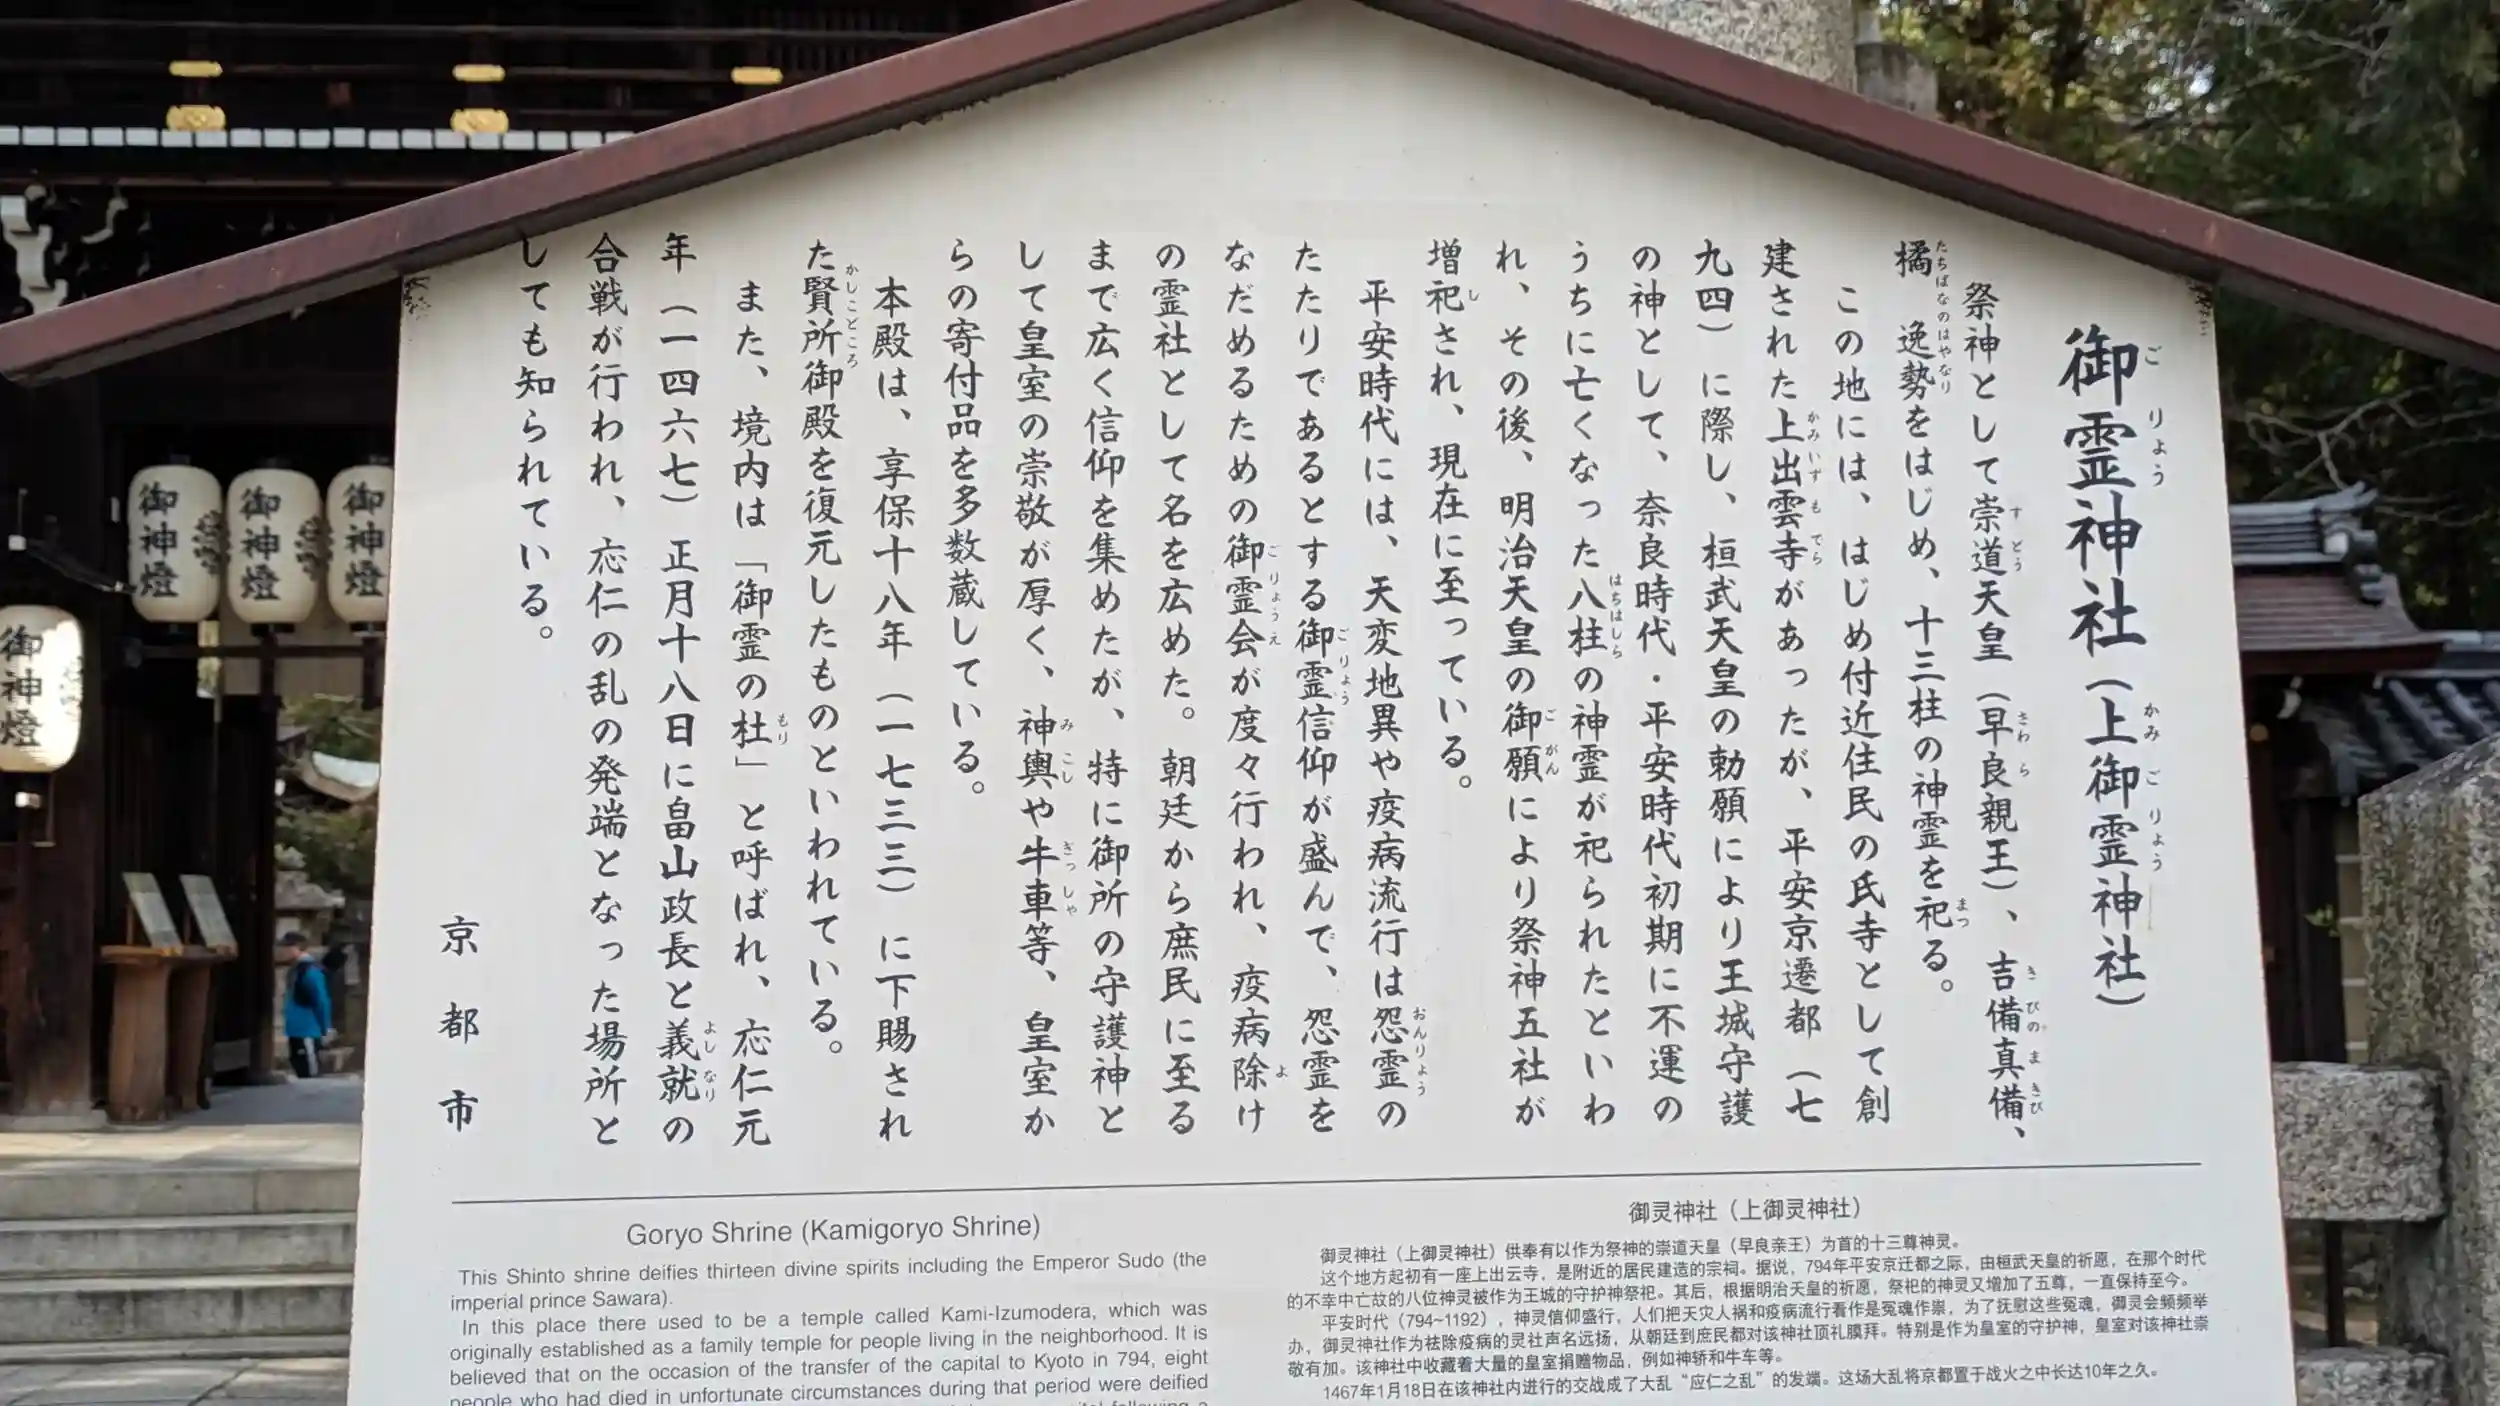 御霊神社（上御霊神社）
祭神として崇道天皇（早良親王）、吉備真備、
橘逸勢をはじめ、十三柱の神霊を祀る。
この地には、はじめ付近住民の氏寺として創
建された上出雲寺があったが、平安京遷都（七
九四）に際し、桓武天皇の勅願により王城守護
の神として、奈良時代・平安時代初期に不運の
うちに亡くなった八柱の神霊が祀られたといわ
れ、その後、明治天皇の御願により祭神五社が
増祀され、現在に至っている。
平安時代には、天変地異や疫病流行は怨霊の
たたりであるとする御霊信仰が盛んで、怨霊を
なだめるための御霊会が度々行われ、疫病除け
の霊社として名を広めた。朝廷から庶民に至る
まで広く信仰を集めたが、特に御所の守護神と
して皇室の崇敬が厚く、神輿や牛車等、皇室か
らの寄付品を多数蔵している。
本殿は、享保十八年（一七三三）に下賜され
た賢所御殿を復元したものといわれている。
また、境内は「御霊の杜」と呼ばれ、応仁元
年（一四六七）正月十八日に畠山政長と義就の
合戦が行われ、応仁の乱の発端となった場所と
しても知られている。
京都市
Goryo Shrine (Kamigoryo Shrine)
This Shinto shrine deifies thirteen divine spirits including the Emperor Sudo (the
imperial prince Sawara).
In this place there used to be a temple called Kami-Izumodera, which was
originally established as a family temple for people living in the neighborhood. It is
believed that on the occasion of the transfer of the capital to Kyoto in 794, eight
people who had died in unfortunate circumstances during that period were deified
御灵神社（上御灵神社）
御灵神社（上御灵神社）供奉有以作为祭神的崇道天皇（早良亲王）为首的十三尊神灵。
这个地方起初有一座上出云寺，是附近的居民建造的宗祠。据说，794年平安京迁都之际，由桓武天皇的祈愿，在那个时代
的不幸中亡故的八位神灵被作为王城的守护神祭祀。其后，根据明治天皇的祈愿，祭祀的神灵又增加了五尊，一直保持至今。
平安时代（794~1192），神灵信仰盛行，人们把天灾人祸和疫病流行看作是冤魂作祟，为了抚慰这些冤魂，御灵会频频举
办，御灵神社作为祛除疫病的灵社声名远扬，从朝廷到庶民都对该神社顶礼膜拜。特别是作为皇室的守护神，皇室对该神社崇
敬有加。该神社中收藏着大量的皇室捐赠物品，例如神轿和牛车等。
1467年1月18日在该神社内进行的交战成了大乱“应仁之乱”的发端。这场大乱将京都置于战火之中长达10年之久。
御神燈
御神燈
御神燈
御神燈